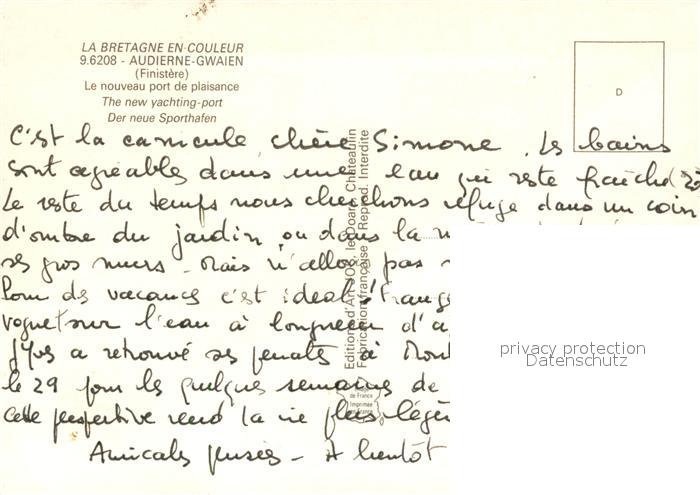 LA BRETAGNE EN COULEUR
9.6208 - AUDIERNE-GWAIEN
(Finistère)
Le nouveau port de plaisance
The new yachting-port
Der neue Sporthafen
D
C'est la canicule, chère Simone. Les bains
sont agréables dans une eau qui reste fraîche
Le reste du temps nous cherchons refuge dans un coin
d'ombre du jardin ou dans la
ses gros murs - Mais n'allons pas
Pour des vacances c'est idéal
sur l'eau à longueur d'
Yves a retrouvé ses penates à
le 29 pour les quelques semaines de
cette perspective rend la vie plus légère
Amicales pensées - A bientôt
Editions d'Art JOS, le Doaré, Chateaulin
Fabrication française - Reprod. Interdite
de France
Imprimée
en France
privacy protection
Datenschutz